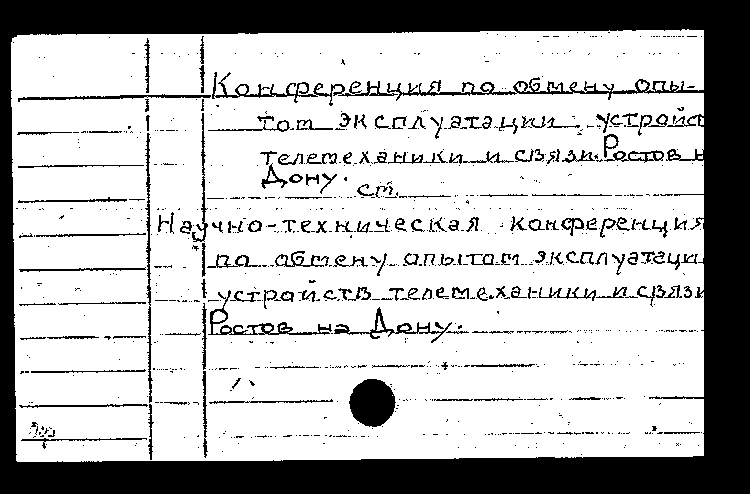 Конференция по обмену опы-
том эксплуатации устройст
телемеханики и связи. Ростов н
Дону.
ст.
Научно-техническая конференция
по обмену опытом эксплуатаци
устройств телемеханики и связи
Ростов на Дону.